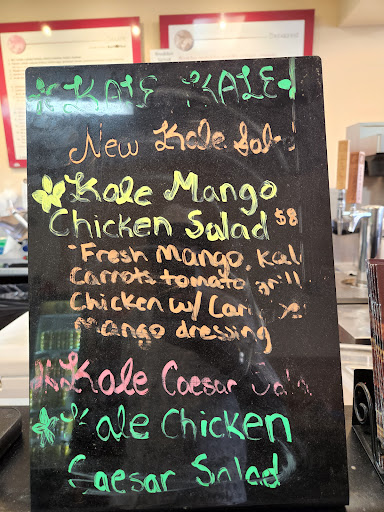 KALE KALE
New Kale Sal
Kale Mango
Chicken Salad $8
Fresh Mango, Kal
Carrots tomato grill
Chicken w/ Car
Mango dressing
Kale Caesar Sala
Kale Chicken
Caesar Salad